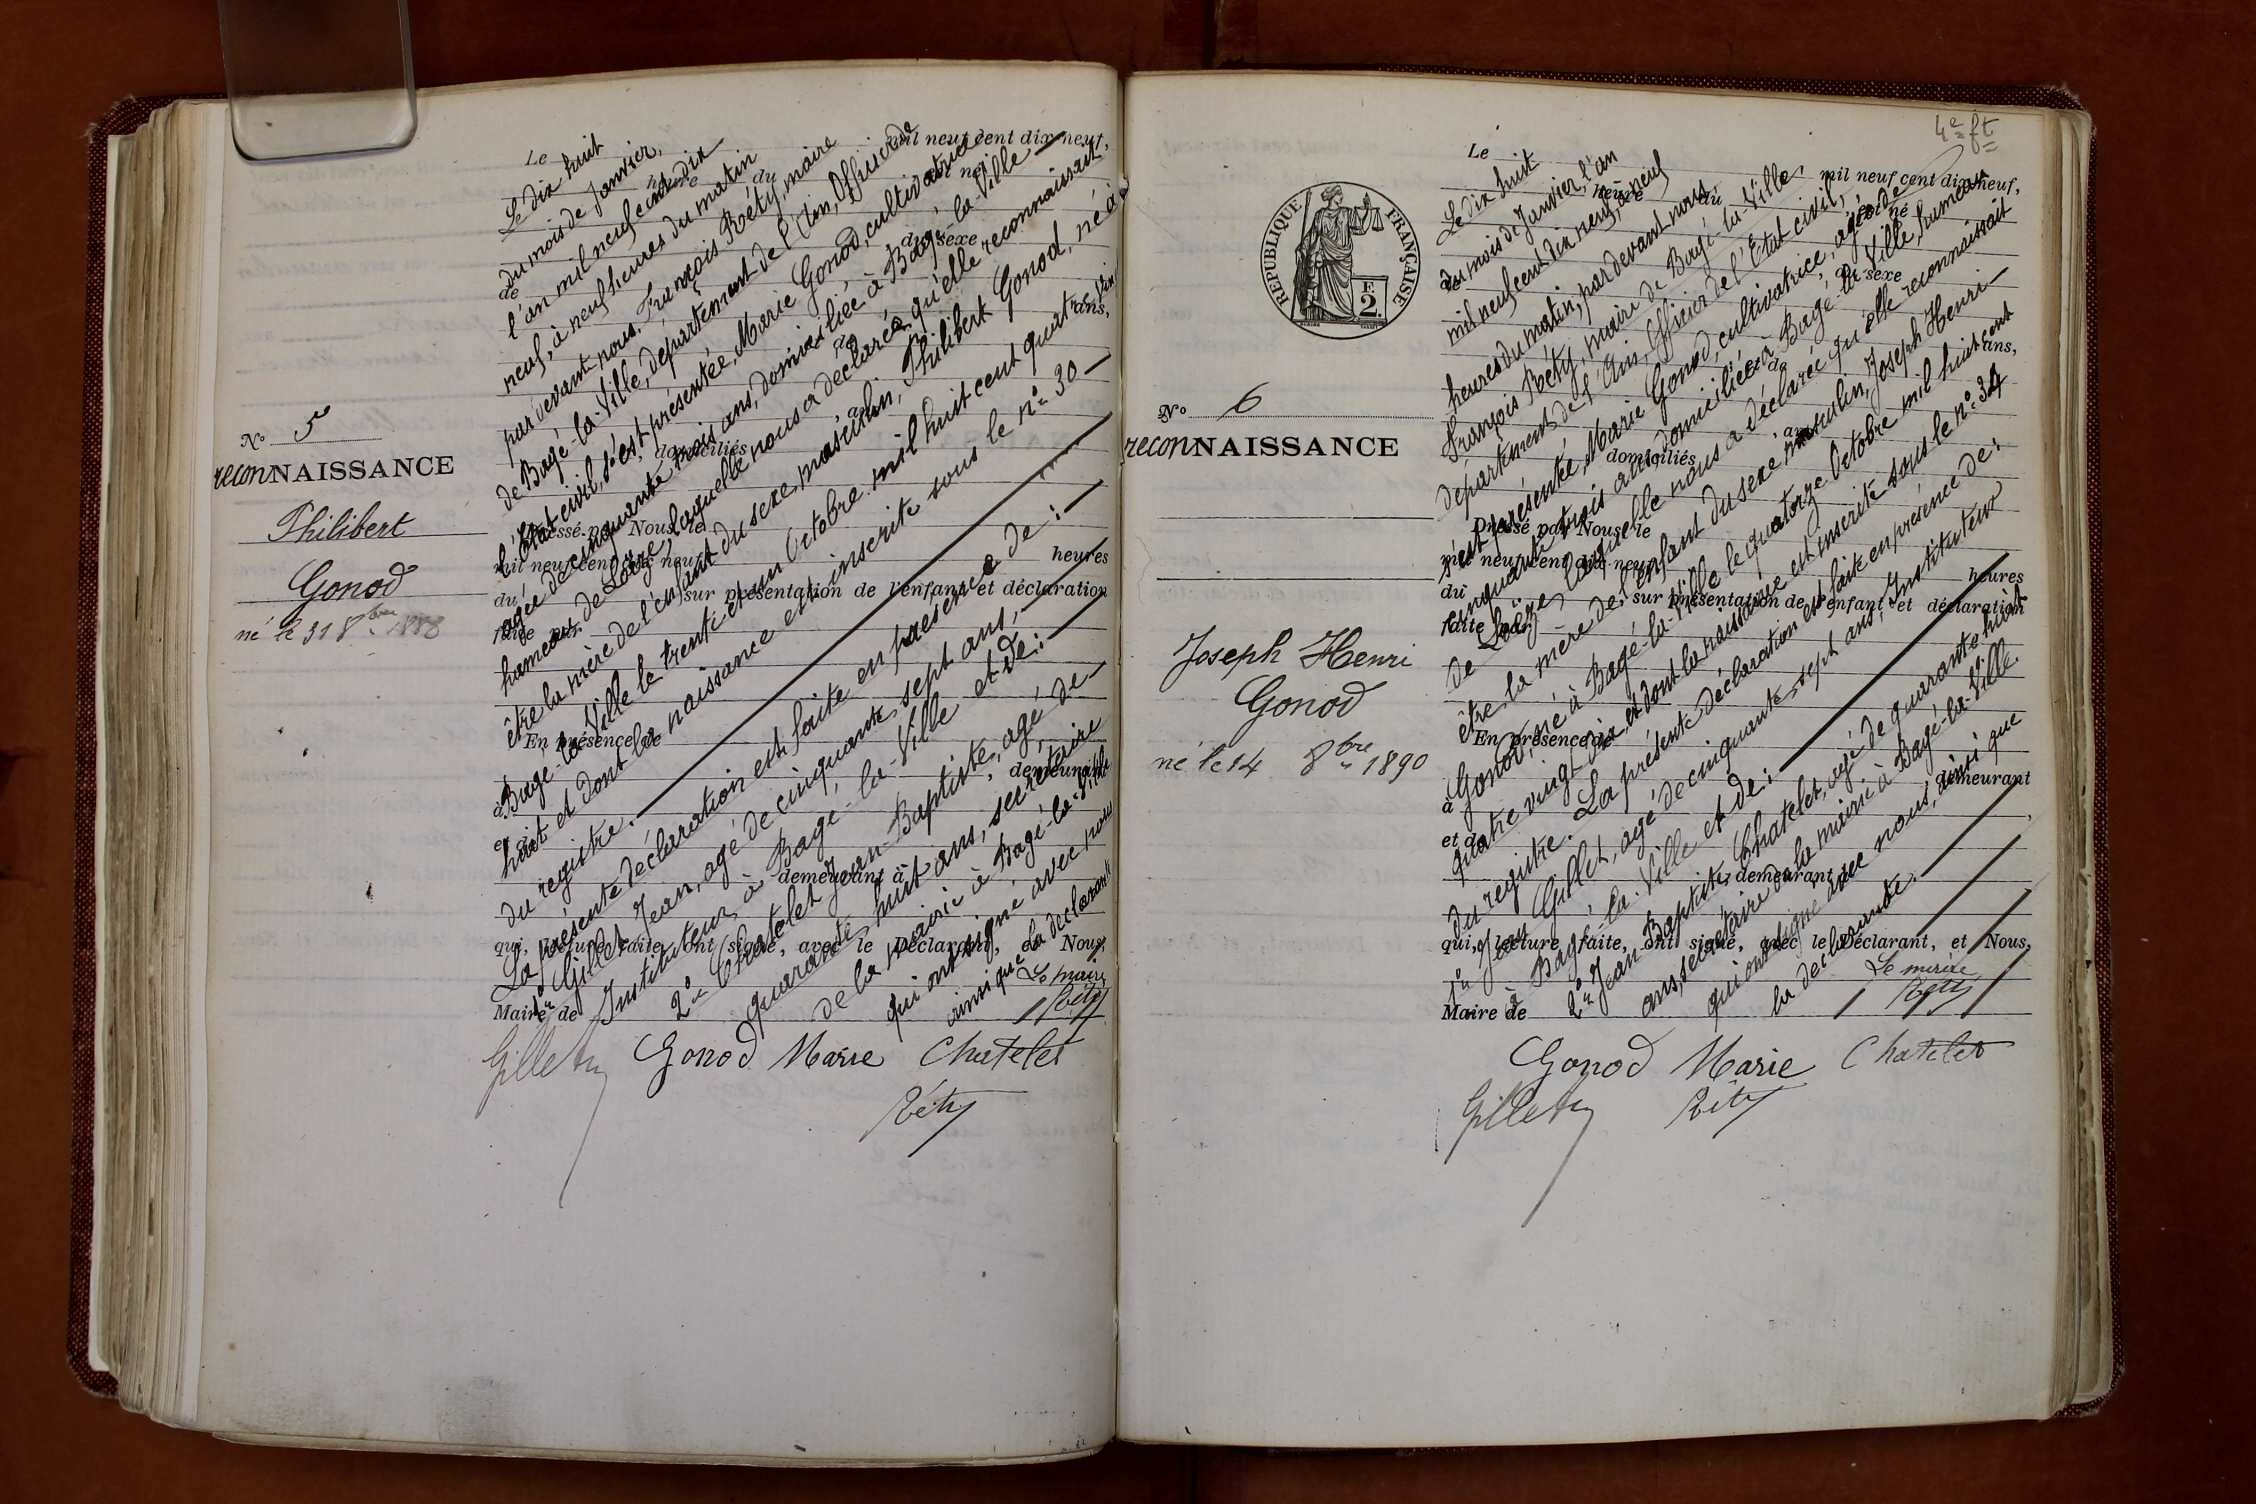 N° 5
reconNAISSANCE
Philibert
Gonod
né le 31 8bre 1888
Le dix huit
du mois de Janvier,
l'an mil neuf cent dix
neuf, à neuf heures du matin
par devant nous, François Réty, maire
de Bagé-la-Ville, département de l'Ain, Officier de
l'Etat civil, s'est présentée, Marie Gonod, cultivatrice
agée de cinquante trois ans, domiciliée à Bagé-la-Ville
hameau de Loëze, laquelle nous a déclaré qu'elle reconnaissait
être la mère de l'enfant du sexe masculin, Philibert Gonod, né à
Bagé-la-Ville le trente et un Octobre mil huit cent quatre vingt
huit et dont la naissance est inscrite sous le n° 30
du registre.
La présente déclaration est faite en présence de :
1° Gillet Jean, agé de cinquante sept ans,
Instituteur, à Bagé-la-Ville et de :
2° Chatelet Jean-Baptiste, agé de
quarante huit ans, secrétaire
de la mairie à Bagé-la-Ville
qui ont signé avec nous
ainsi que la déclarante
Le maire
Réty
Le mil neuf cent dix-neuf,
heure du
est né
de
du sexe
de
ans,
a
domiciliés
Dressé par Nous le
mil neuf cent dix-neuf
heures
du sur présentation de l'enfant et déclaration
faite par
En présence de
demeurant
à
et de
demeurant à
qui, lecture faite, ont signé, avec le Déclarant, et Nous,
Maire de
Gillet Gonod Marie Chatelet
Réty
4e ft
RÉPUBLIQUE FRANÇAISE
F.
2.
N° 6
reconNAISSANCE
Joseph Henri
Gonod
né le 14 8bre 1890
Le dix huit
du mois de Janvier, l'an
mil neuf cent dix neuf, à neuf
heures du matin, par devant nous
François Réty, maire de Bagé-la-Ville,
département de l'Ain, Officier de l'Etat civil,
s'est présentée, Marie Gonod, cultivatrice, agée de
cinquante trois ans, domiciliée à Bagé-la-Ville, hameau
de Loëze, laquelle nous a déclaré qu'elle reconnaissait
être la mère de l'enfant du sexe masculin, Joseph Henri
Gonod, né à Bagé-la-Ville le quatorze Octobre mil huit cent
quatre vingt dix et dont la naissance est inscrite sous le n° 34
du registre. La présente déclaration est faite en présence de :
1° Jean Gillet, agé de cinquante sept ans, Instituteur
à Bagé-la-Ville et de :
2° Jean Baptiste Chatelet, agé de quarante huit
ans, secrétaire de la mairie à Bagé-la-Ville.
qui ont signé avec nous, ainsi que
la déclarante.
Le maire
Réty
Le mil neuf cent dix-neuf,
heure du
est né
du sexe
de
ans,
domiciliés
Dressé par Nous le
mil neuf cent dix-neuf
heures
du sur présentation de l'enfant et déclaration
faite par
En présence de
demeurant
à
et de
demeurant à
qui, lecture faite, ont signé, avec le Déclarant, et Nous,
Maire de
Gonod Marie Chatelet
Gillet Réty